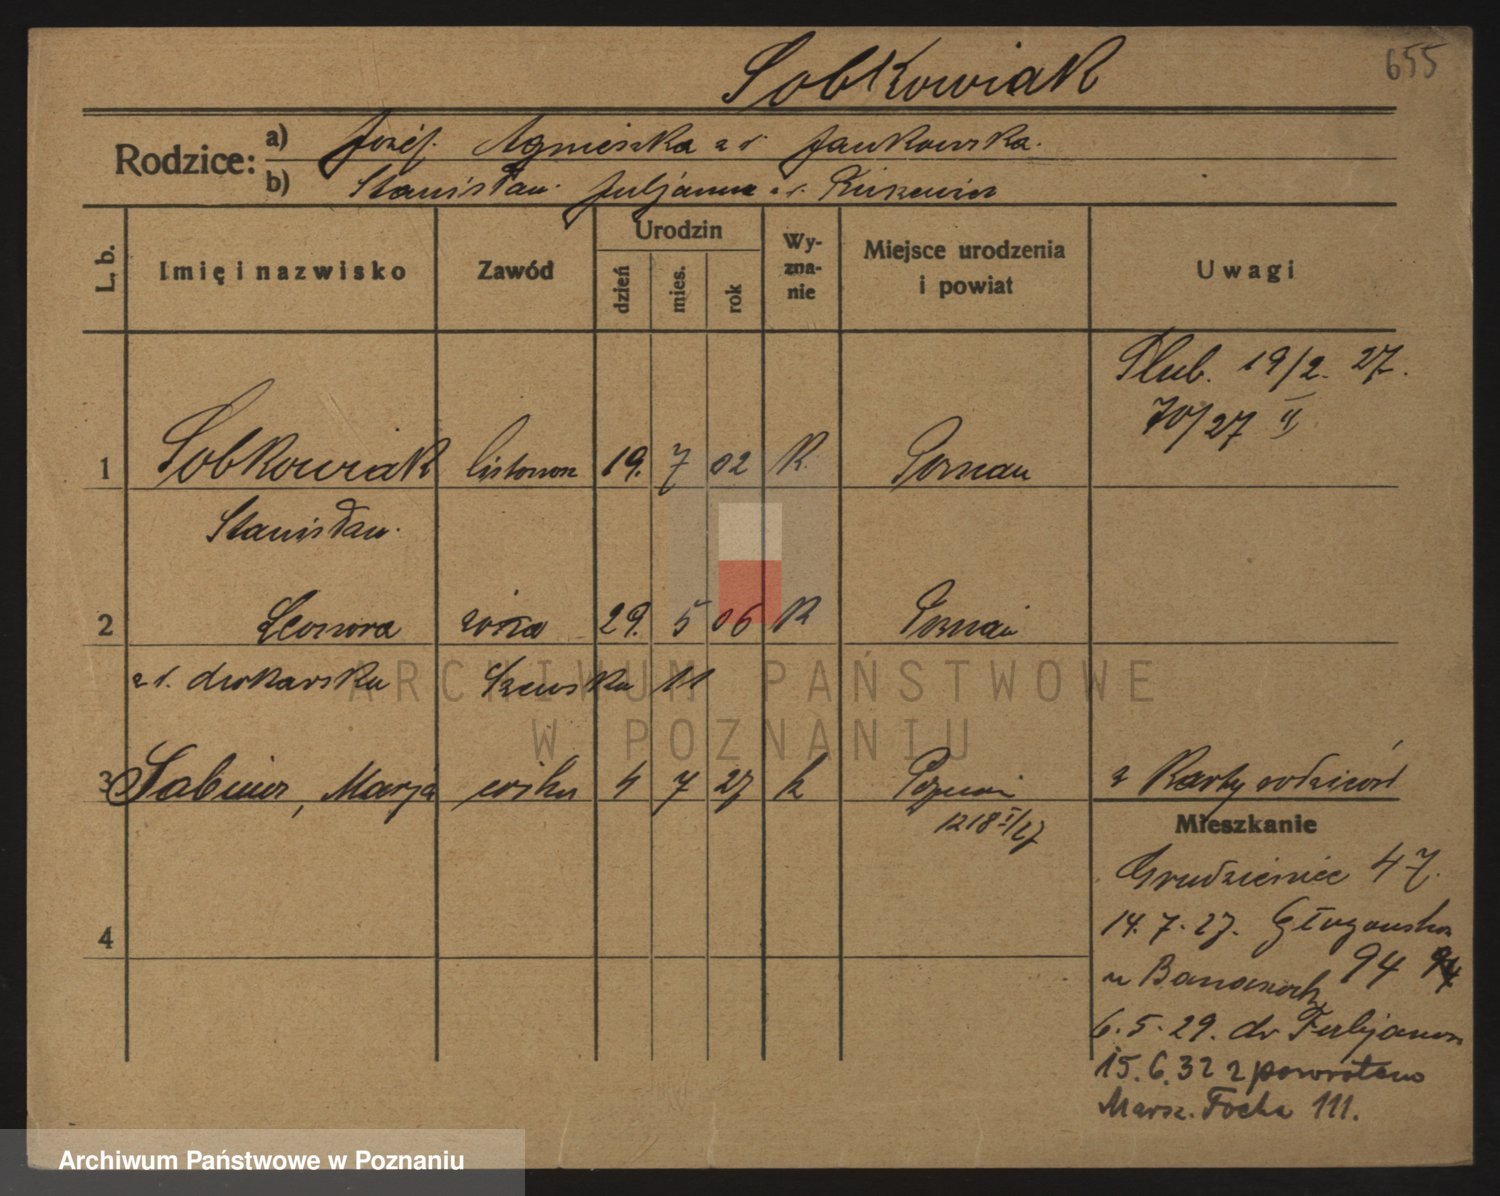 655
Sobkowiak
Rodzice:
a) Józef. Agnieszka z d. Jankowska.
b) Stanisław. Juljanna z d.
L. b.
Imię i nazwisko
Zawód
Urodzin
dzień
mies.
rok
Wy-
zna-
nie
Miejsce urodzenia
i powiat
Uwagi
Ślub. 19/2. 27.
70/27 II
1 Sobkowiak listonosz 19. 7 02 K. Poznań
Stanisław.
2 Leonora żona 29. 5 06 K Poznań
z d. drukarska Szewska 11
3 Sabina, Marja córka 4 7 27 k Poznań z Karty rodziców
1218 I/27
Mieszkanie
Grudzieniec 47.
14. 7. 27. Głogowska
u 94 94
4
6. 5. 29. do Fabjanowa
15. 6. 32 z powrotem
Marsz. Focha 111.
ARCHIWUM PAŃSTWOWE
W POZNANIU
Archiwum Państwowe w Poznaniu